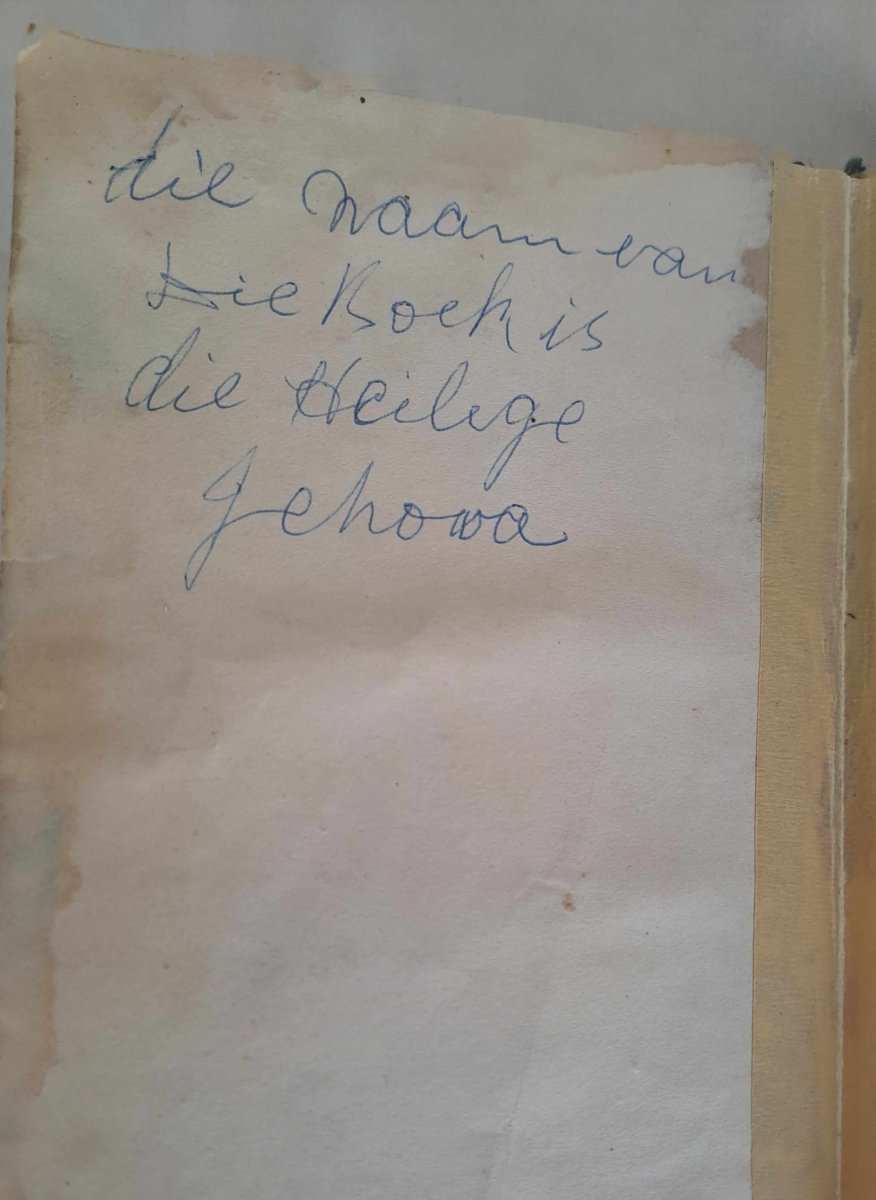 die Naam van
Die Boek is
die Heilige
Jehowa